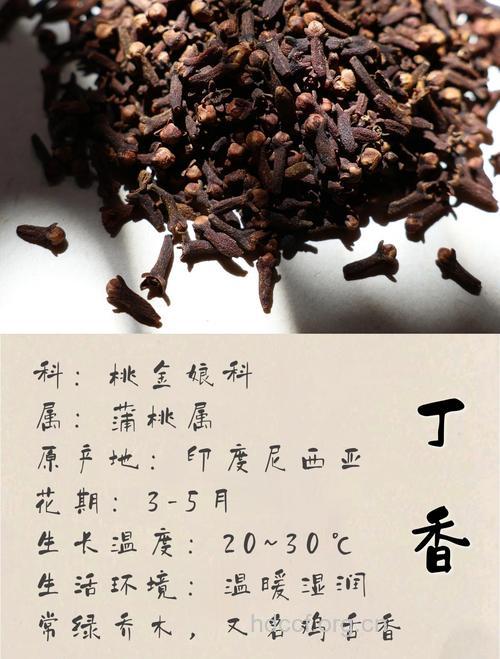 科：桃金娘科
属：蒲桃属
原产地：印度尼西亚
花期：3-5月
生长温度：20~30℃
生活环境：温暖湿润
常绿乔木，又名鸡舌香
丁香